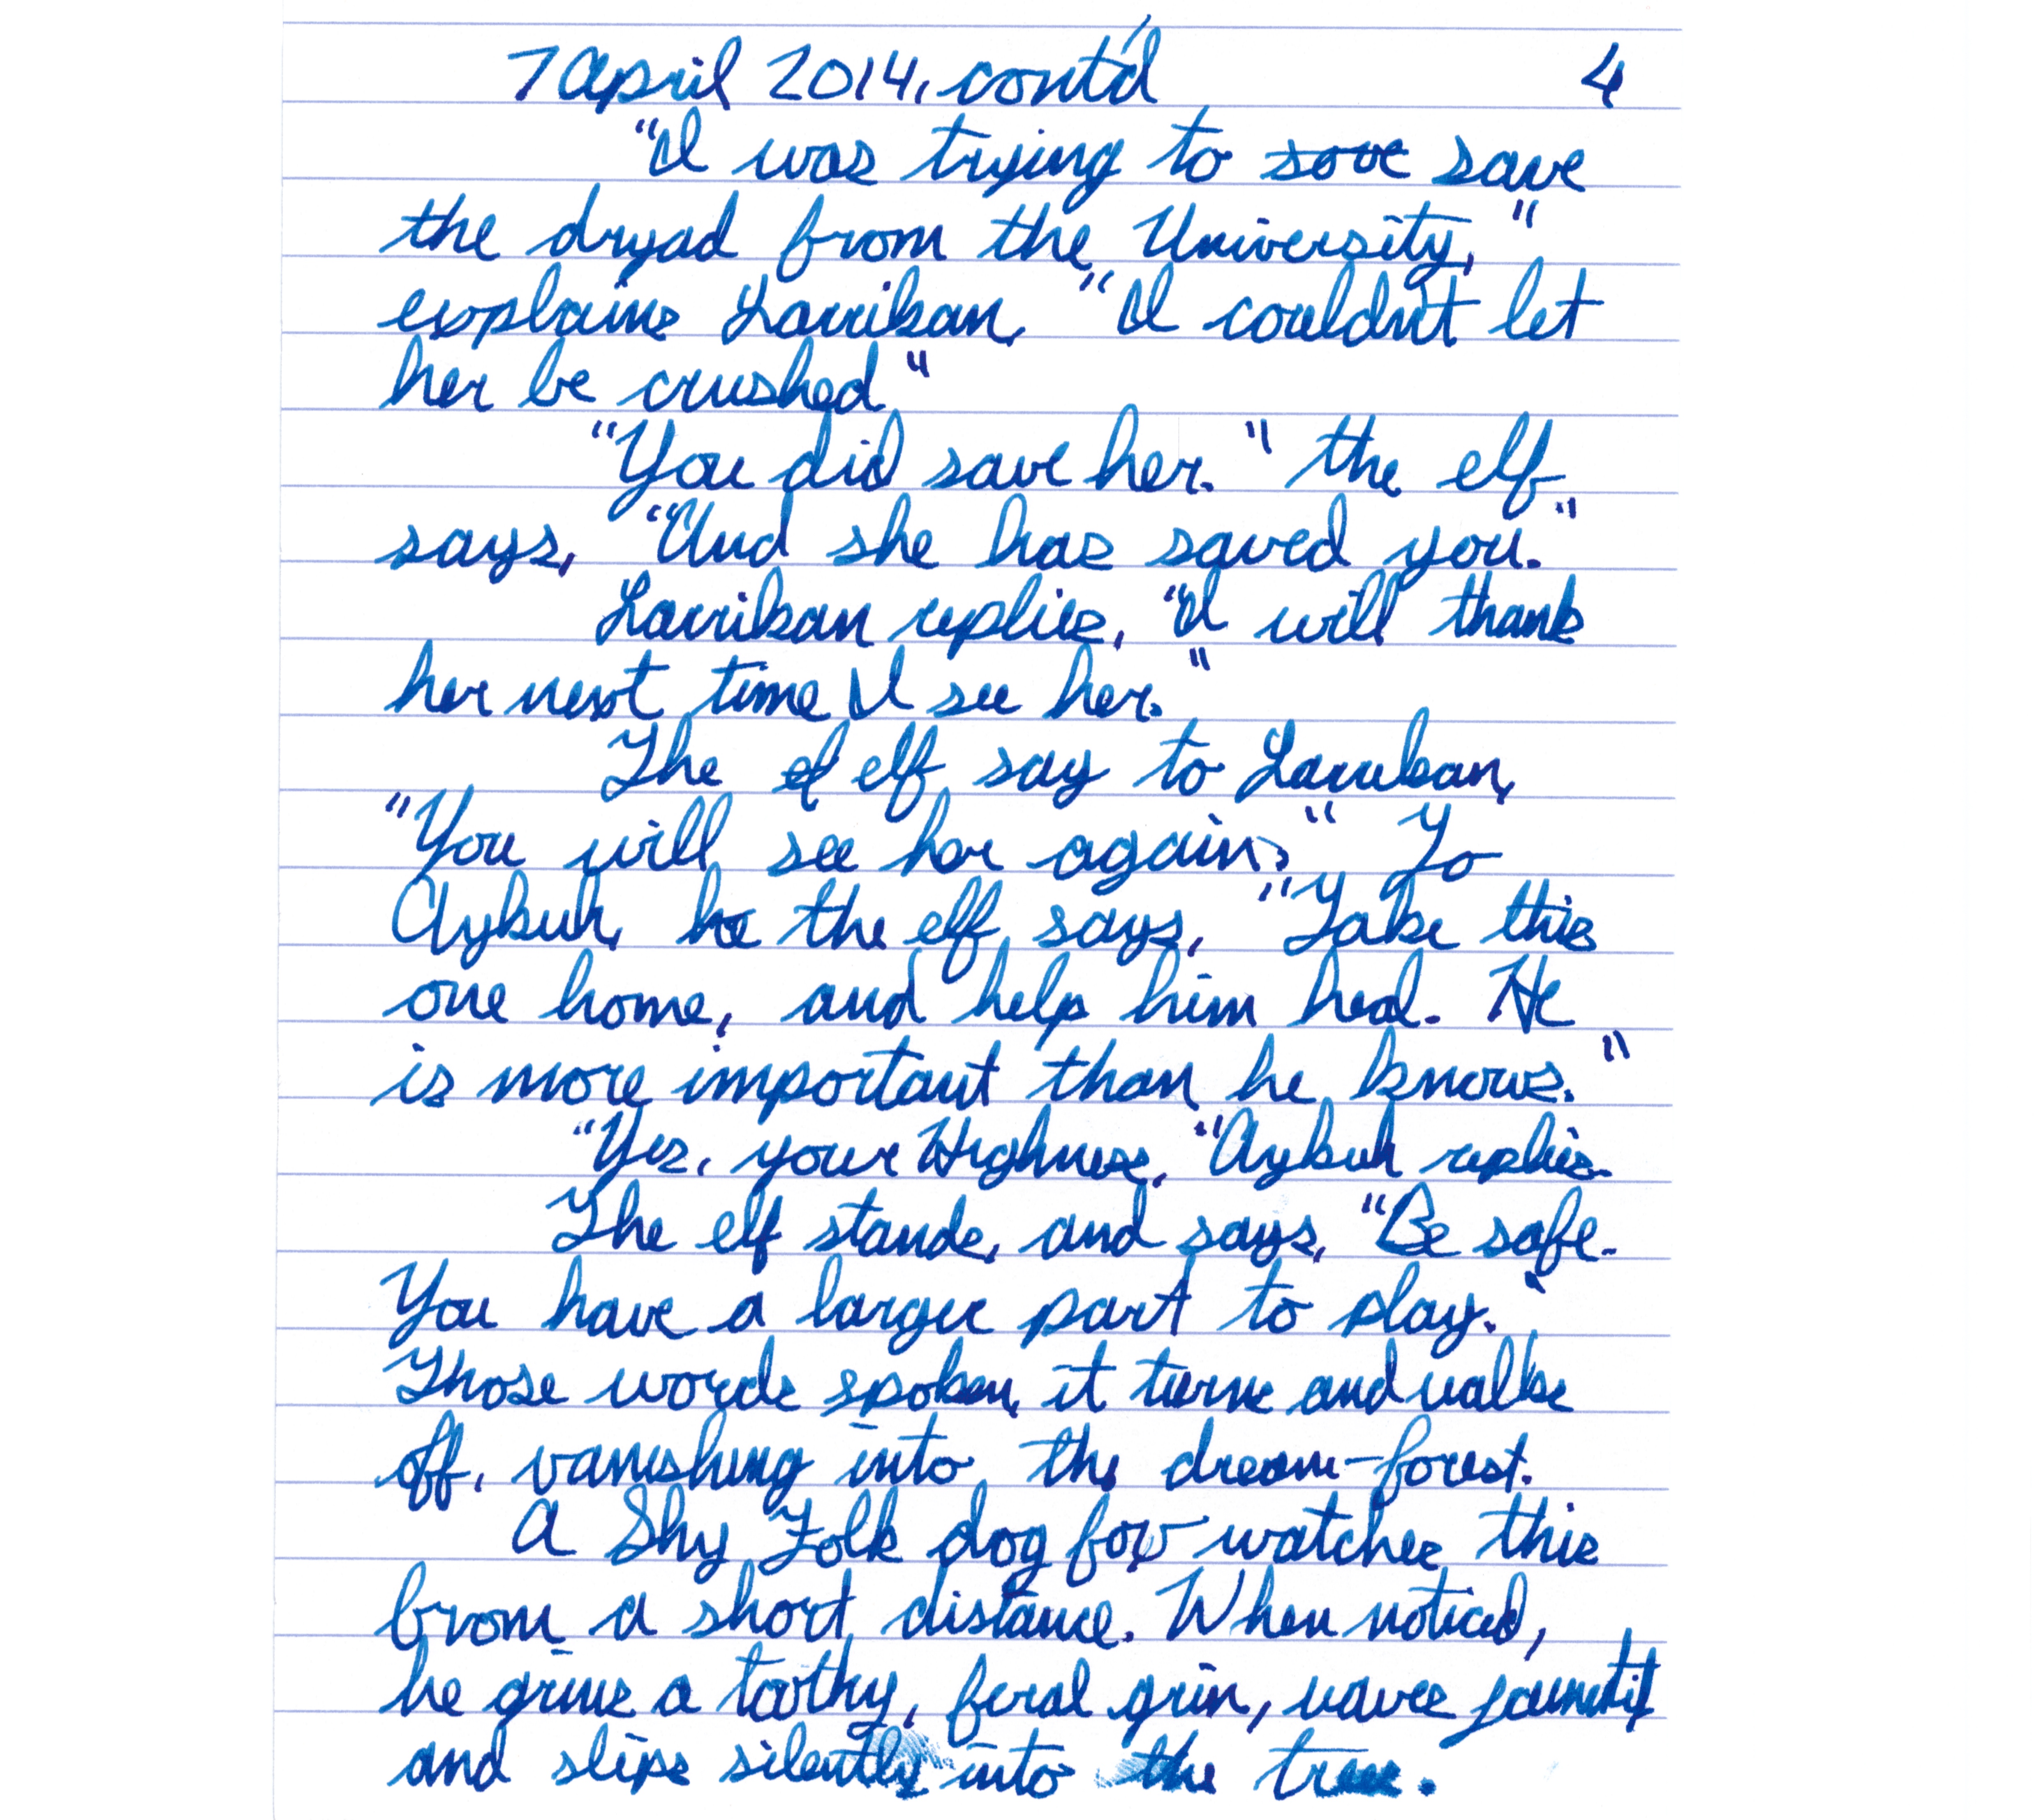 7 April 2014, cont'd 4
"I was trying to sove save
the dryad from the University,"
explains Larrikan, "I couldn't let
her be crushed"
"You did save her." the elf
says, "And she has saved you."
Larrikan replies, "I will thank
her next time I see her."
The ef elf say to Larrikan,
"You will see her again." To
Aykuh, he the elf says, "Take this
one home, and help him heal. He
is more important than he knows."
"Yes, your Highness," Aykuh replies.
The elf stands, and says, "Be safe.
You have a larger part to play."
Those words spoken, it turns and walks
off, vanishing into the dream-forest.
A Shy Folk dog fox watches this
from a short distance. When noticed,
he grins a toothy, feral grin, waves jauntily
and slips silently into the trees.